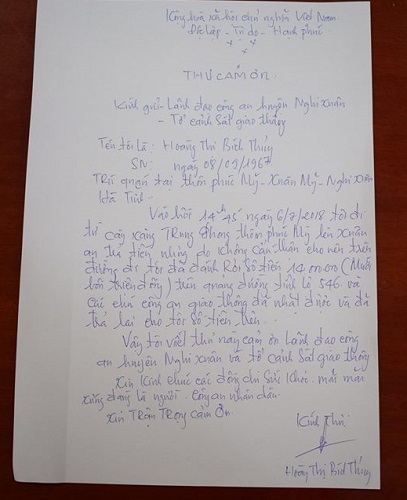 Cộng hòa xã hội chủ nghĩa Việt Nam
Độc lập - Tự do - Hạnh phúc
THƯ CẢM ƠN
Kính gửi - Lãnh đạo công an huyện Nghi Xuân
- Tổ cảnh sát giao thông
Tên tôi là: Hoàng Thị Bích Thủy
SN: ngày 08/09/1967
Trú quán tại thôn phúc Mỹ - Xuân Mỹ - Nghi Xuân
Hà Tĩnh -
Vào hồi 14h45 ngày 6/7/2018 tôi đi
từ cây xăng Trung Phong thôn phúc Mỹ lên xuân
an thu tiền nhưng do không cẩn thận cho nên trên
đường đi tôi đã đánh Rơi số tiền 14.000.000 (Mười
bốn triệu đồng) trên quảng đường tỉnh lộ 546 và
các chú công an giao thông đã nhặt được và đã
trả lại cho tôi số tiền trên.
Vậy tôi viết thư này cảm ơn Lãnh đạo công
an huyện Nghi xuân và tổ cảnh sát giao thông
xin kính chúc các đồng chí sức khỏe. mãi mãi
xứng đáng là người công an nhân dân.
xin Trân Trọng cảm ơn.
Kính Thư
Hoàng Thị Bích Thủy